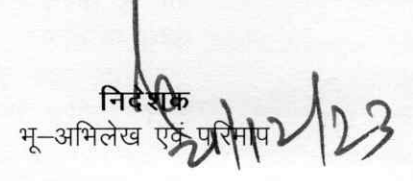 निदेशक
भू–अभिलेख एवं परिमाप
/12/23